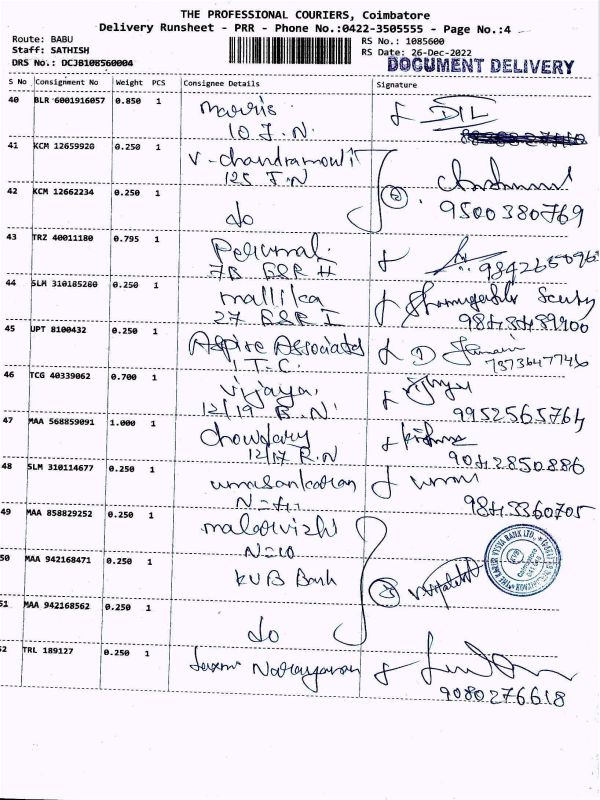 THE PROFESSIONAL COURIERS, Coimbatore
Delivery Runsheet - PRR - Phone No.:0422-3505555 - Page No.:4
Route: BABU
Staff: SATHISH
DRS No.: DCJB108560004
RS No.: 1085600
RS Date: 26-Dec-2022
DOCUMENT DELIVERY
S No Consignment No Weight PCS Consignee Details Signature
40 BLR 6001916057 0.850 1 DIL
10 J.N.
41 KCM 12659920 0.250 1 V-chandramouli
125 J.N
42 KCM 12662234 0.250 1 do 9500380769
43 TRZ 40011180 0.795 1 Perumal
7B GSR H
44 SLM 310185280 0.250 1 mallika
27 GSR I
45 UPT 8100432 0.250 1 Aspire Associates
I.T.C. 7373647746
46 TCG 40339062 0.700 1 Vijaya
12/19 B.N. 9952565764
47 MAA 568859091 1.000 1 Chowdary
12/17 R.N 9042850886
48 SLM 310114677 0.250 1 umasankaran
9843360705
49 MAA 858829252 0.250 1
N=10
50 MAA 942168471 0.250 1 KVB Bank
51 MAA 942168562 0.250 1 do
52 TRL 189127 0.250 1 Laxmi Narayanan
9080276618